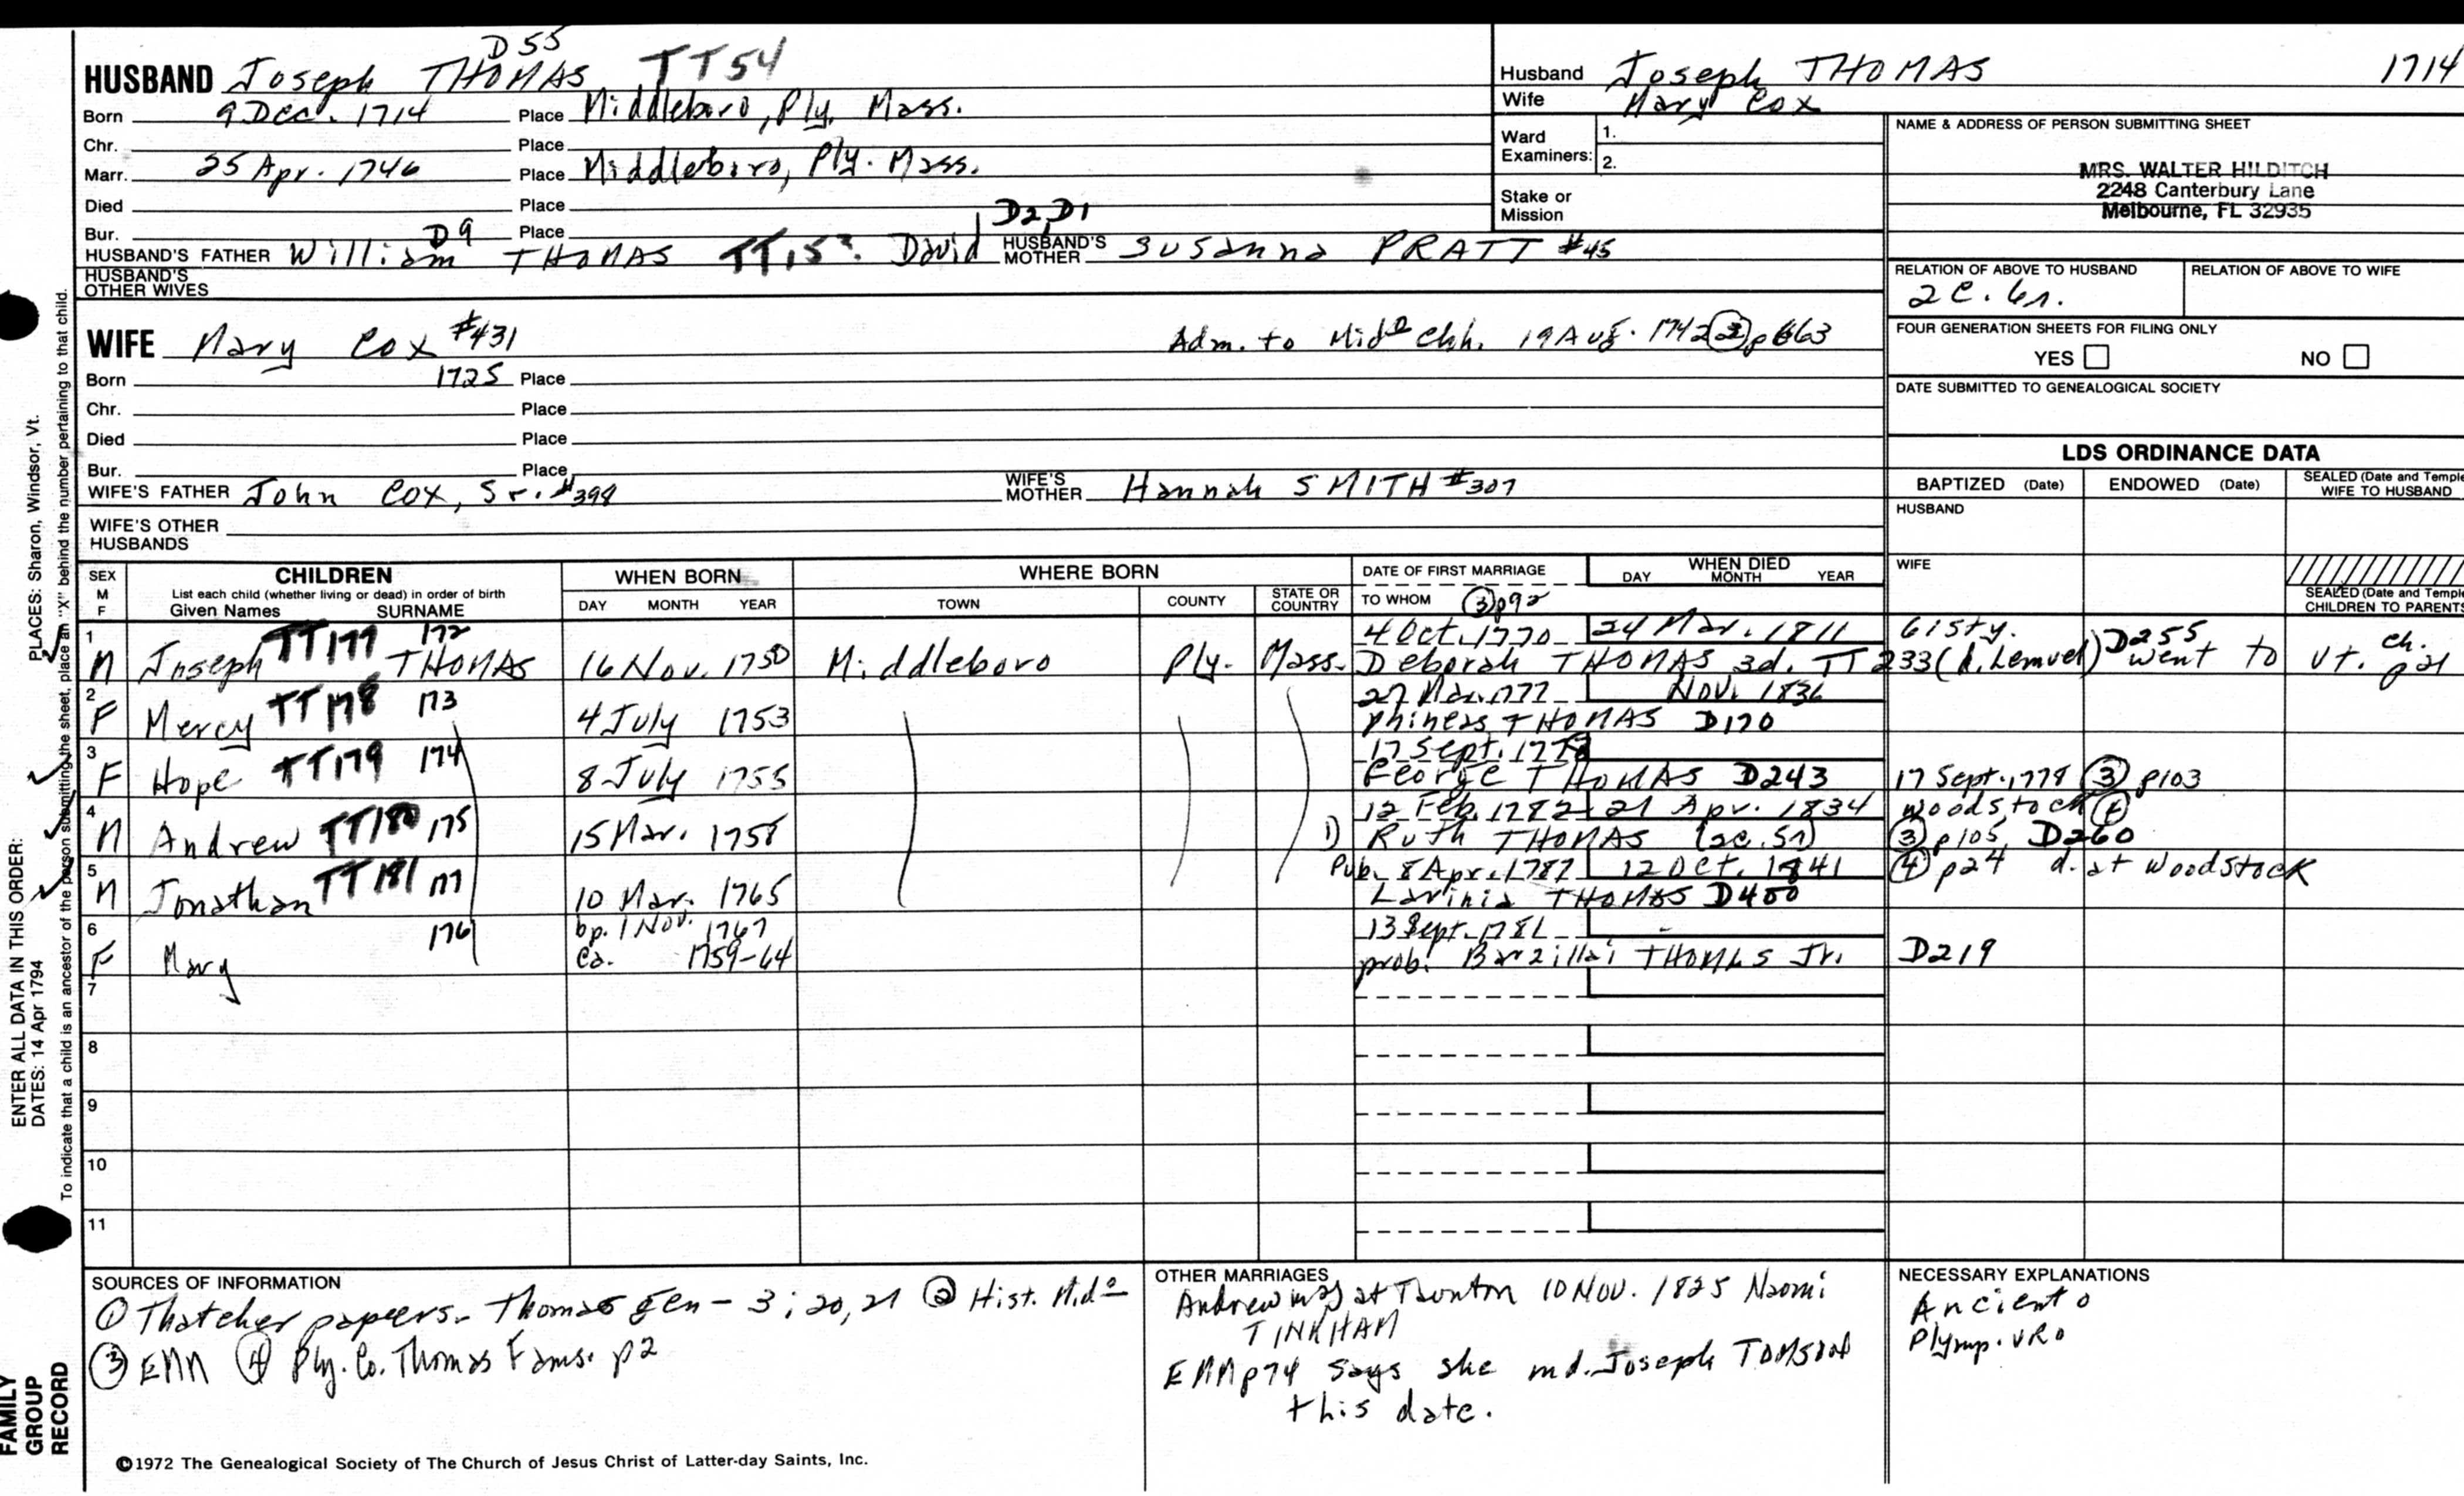 D55
HUSBAND Joseph THOMAS TT54
Born 9 Dec. 1714 Place Middleboro, Ply. Mass.
Chr. Place
Marr. 25 Apr. 1746 Place Middleboro, Ply. Mass.
Died Place
Bur. Place
D9 D2, D1
HUSBAND'S FATHER William THOMAS TT15? David HUSBAND'S MOTHER Susanna PRATT #45
HUSBAND'S OTHER WIVES
Husband Joseph THOMAS 1714
Wife Mary Cox
Ward Examiners: 1.
2.
Stake or Mission
NAME & ADDRESS OF PERSON SUBMITTING SHEET
MRS. WALTER HILDITCH
2248 Canterbury Lane
Melbourne, FL 32935
RELATION OF ABOVE TO HUSBAND RELATION OF ABOVE TO WIFE
2c. 6r.
FOUR GENERATION SHEETS FOR FILING ONLY
YES NO
DATE SUBMITTED TO GENEALOGICAL SOCIETY
WIFE Mary Cox #431 Adm. to Mido Chh. 19 Aug. 1742 (2) p 663
Born 1725 Place
Chr. Place
Died Place
Bur. Place
WIFE'S FATHER John Cox, Sr. #398 WIFE'S MOTHER Hannah SMITH #307
WIFE'S OTHER HUSBANDS
LDS ORDINANCE DATA
BAPTIZED (Date) ENDOWED (Date) SEALED (Date and Temple) WIFE TO HUSBAND
HUSBAND
WIFE
SEALED (Date and Temple) CHILDREN TO PARENTS
SEX M F CHILDREN WHEN BORN WHERE BORN DATE OF FIRST MARRIAGE WHEN DIED
List each child (whether living or dead) in order of birth
Given Names SURNAME DAY MONTH YEAR TOWN COUNTY STATE OR COUNTRY TO WHOM (3) p92 DAY MONTH YEAR
1 TT177 172 4 Oct. 1770 24 Mar. 1811
M Joseph THOMAS 16 Nov. 1750 Middleboro Ply. Mass. Deborah THOMAS 3d. TT233 (d. Lemuel) D255 went to Vt. ch. p21
2 TT178 173 Nov. 1836
F Mercy 4 July 1753 Phineas THOMAS D170
3 TT179 174 17 Sept. 1778
F Hope 8 July 1755 George THOMAS D243 17 Sept. 1778 (3) p103
4 TT180 175 12 Feb. 1782 21 Apr. 1834 Woodstock
M Andrew 15 Mar. 1758 1) Ruth THOMAS (2c. 5r) (3) p105, D260
5 TT181 177 Pub. 8 Apr. 1787 12 Oct. 1841 (4) p24 d. at Woodstock
M Jonathan 10 Mar. 1765 Lavinia THOMAS D400
6 176 bp. 1 Nov. 1767 13 Sept. 1781
F Mary Ca. 1759-64 prob. Barzillai THOMAS Jr. D219
7
8
9
10
11
SOURCES OF INFORMATION
(1) Thatcher papers - Thomas gen - 3; 20, 21 (2) Hist. Mido
(3) EMM (4) Ply. Co. Thomas Fams. p2
OTHER MARRIAGES
Andrew m 2) at Taunton 10 Nov. 1825 Naomi
TINKHAM
EMM p74 says she md. Joseph TOMSON
this date.
NECESSARY EXPLANATIONS
Ancient o
Plymp. VRo
©1972 The Genealogical Society of The Church of Jesus Christ of Latter-day Saints, Inc.
FAMILY GROUP RECORD
ENTER ALL DATA IN THIS ORDER:
DATES: 14 Apr 1794
PLACES: Sharon, Windsor, Vt.
To indicate that a child is an ancestor of the person submitting the sheet, place an "X" behind the number pertaining to that child.